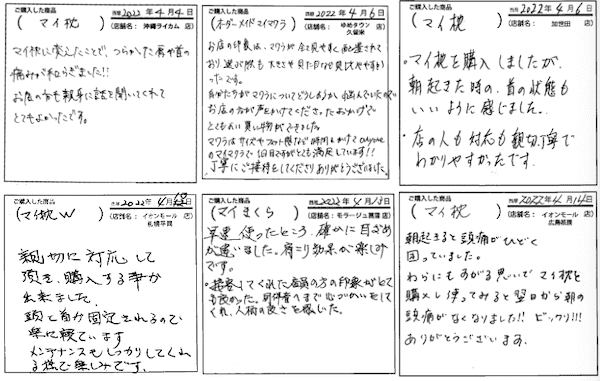 ご購入した商品
(マイ枕)
2022年4月4日
(店舗名: 沖縄ライカム 店)
マイ枕に変えたことで、つらかった肩や首の
痛みが和らぎました!!
お店の方も親身に話を聞いてくれて
とてもよかったです。
ご購入した商品
(オーダーメイドマイマクラ)
2022年4月6日
(店舗名: ゆめタウン 店)
久留米
お店の印象は、マクラが全て見やすく配置されて
おり選ぶ際も大きさや見た目など見比べやすか
ったです。
お店の方が声をかけてくださったおかげで
とてもよい買い物ができました。
のマイマクラで1日目ですがとても満足しています!!
丁寧にご接待をしてくださりありがとうございました。
ご購入した商品
(マイ枕)
2022年4月6日
(店舗名: 加世田 店)
・マイ枕を購入しましたが、
朝起きた時の、首の状態も
いいように感じました。
・店の人も対応も親切、丁寧で
わかりやすかったです。
ご購入した商品
(マイ枕W)
2022年4月
(店舗名: イオンモール 店)
札幌平岡
親切に対応して
頂き、購入する事が
出来ました。
頭と首が固定されるので
楽に寝ています
メンテナンスもしっかりしてくれ
る様で楽しみです。
ご購入した商品
(マイまくら)
2022年4月13日
(店舗名: モラージュ菖蒲 店)
早速使ったところ、確かに目ざめ
が違いました。肩こり効果が楽しみ
です。
・接客してくれた店員の方の印象がとて
も良かった。同伴者へまで心づかいをして
くれ、人柄の良さを感じた。
ご購入した商品
(マイ枕)
2022年4月14日
(店舗名: イオンモール 店)
広島祇園
朝起きると頭痛がひどく
困っていました。
わらにもすがる思いでマイ枕を
購入し使ってみると翌日から朝の
頭痛がなくなりました!! ビックリ!!!
ありがとうございます。